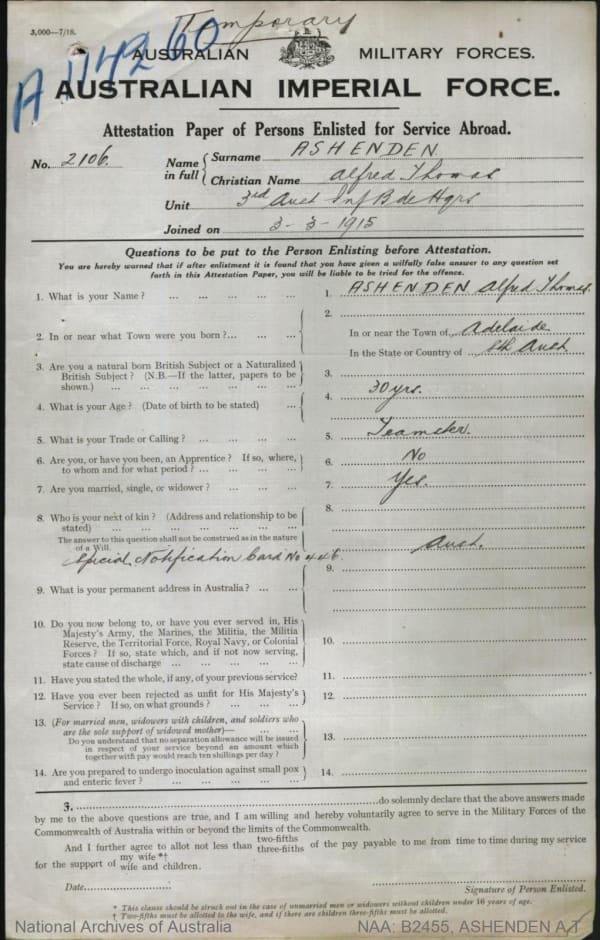 3,000—7/18.
Temporary
A 114260
AUSTRALIAN MILITARY FORCES.
AUSTRALIAN IMPERIAL FORCE.
Attestation Paper of Persons Enlisted for Service Abroad.
No. 2106. Name in full { Surname ASHENDEN.
Christian Name Alfred Thomas
Unit 3rd Aust Inf Bde Hqrs
Joined on 3-3-1915
Questions to be put to the Person Enlisting before Attestation.
You are hereby warned that if after enlistment it is found that you have given a wilfully false answer to any question set
forth in this Attestation Paper, you will be liable to be tried for the offence.
1. What is your Name? ... ... ... ... ... 1. ASHENDEN Alfred Thomas.
2. In or near what Town were you born?... ... ... 2. In or near the Town of Adelaide
In the State or Country of Sth Aust
3. Are you a natural born British Subject or a Naturalized
British Subject? (N.B.—If the latter, papers to be
shown.) ... ... ... ... ... ... ... 3.
4. What is your Age? (Date of birth to be stated) ... 4. 30 yrs.
5. What is your Trade or Calling? ... ... ... ... 5. Teamster.
6. Are you, or have you been, an Apprentice? If so, where,
to whom and for what period? ... ... ... ... 6. No
7. Are you married, single, or widower? ... ... ... 7. Yes.
8. Who is your next of kin? (Address and relationship to be
stated) ... ... ... ... ... ... ... 8.
The answer to this question shall not be construed as in the nature
of a Will.
Special Notification Card No 446. Aust.
9. What is your permanent address in Australia? ... ... 9.
10. Do you now belong to, or have you ever served in, His
Majesty's Army, the Marines, the Militia, the Militia
Reserve, the Territorial Force, Royal Navy, or Colonial
Forces? If so, state which, and if not now serving,
state cause of discharge ... ... ... ... ... 10.
11. Have you stated the whole, if any, of your previous service? 11.
12. Have you ever been rejected as unfit for His Majesty's
Service? If so, on what grounds? ... ... ... 12.
13. (For married men, widowers with children, and soldiers who
are the sole support of widowed mother)—
Do you understand that no separation allowance will be issued
in respect of your service beyond an amount which
together with pay would reach ten shillings per day? 13.
14. Are you prepared to undergo inoculation against small pox
and enteric fever? ... ... ... ... ... 14.
3. ...do solemnly declare that the above answers made
by me to the above questions are true, and I am willing and hereby voluntarily agree to serve in the Military Forces of the
Commonwealth of Australia within or beyond the limits of the Commonwealth.
And I further agree to allot not less than two-fifths three-fifths of the pay payable to me from time to time during my service
for the support of my wife *† wife and children.
Date
Signature of Person Enlisted.
* This clause should be struck out in the case of unmarried men or widowers without children under 16 years of age.
† Two-fifths must be allotted to the wife, and if there are children three-fifths must be allotted.
National Archives of Australia NAA: B2455, ASHENDEN A T